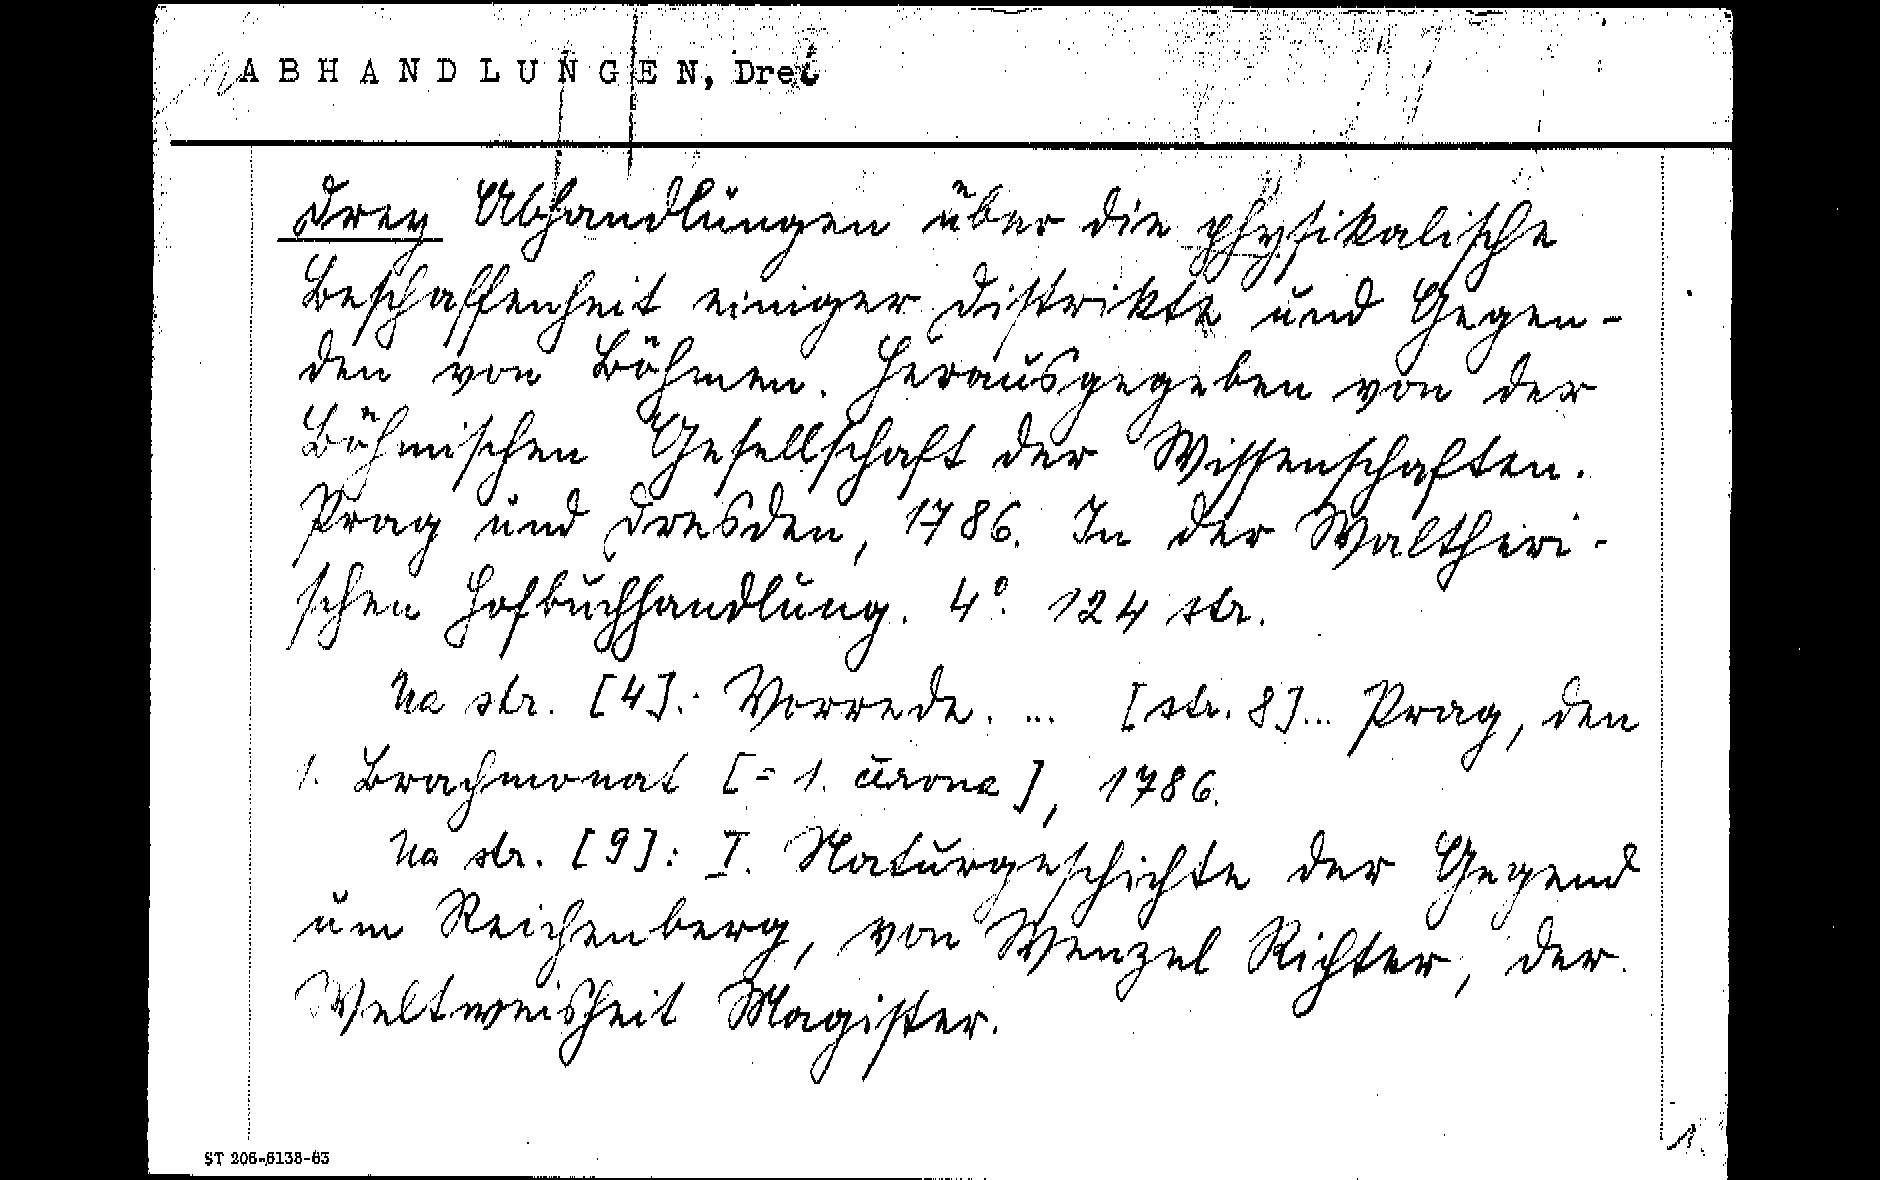 ABHANDLUNGEN, Drei
Drey Abhandlungen über die physikalische
Beschaffenheit einiger Distrikte und Gegen-
den von Böhmen. Herausgegeben von der
Böhmischen Gesellschaft der Wissenschaften.
Prag und Dresden, 1786. In der Waltheri-
schen Hofbuchhandlung. 4°. 124 str.
Na str. [4]: Vorrede. ... [str. 8]... Prag, den
1. Brachmonat [= 1. února], 1786.
Na str. [9]: I. Naturgeschichte der Gegend
um Reichenberg, von Wenzel Richter, der
Weltweisheit Magister.
1.
ST 206-6138-63